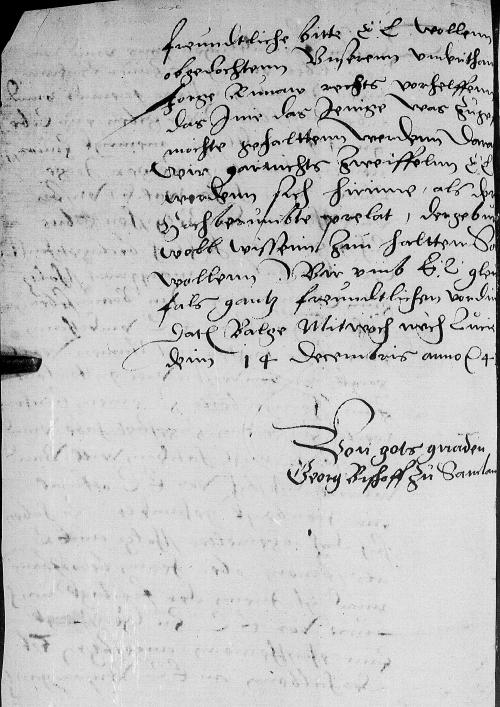 freundtliche bitte E L wollenn
obgedochtenn Unserenn underthan
rechts vorhelffenn
das Ime das Jenige was zuge
mochte gehalttenn werdenn
wir garnichts zweiffelnn E L
werdenn sich hirinne, als der
Hochberumbte prelat, der gebur
woll wissenn zun haltten
wollenn Wir umb E L glei
fals gantz freundtlichen vordi
Dat Balge Mitwoch nach Lucie
denn 14 decembris anno 4
Von gots gnaden
Georg Bischoff zu Samlan